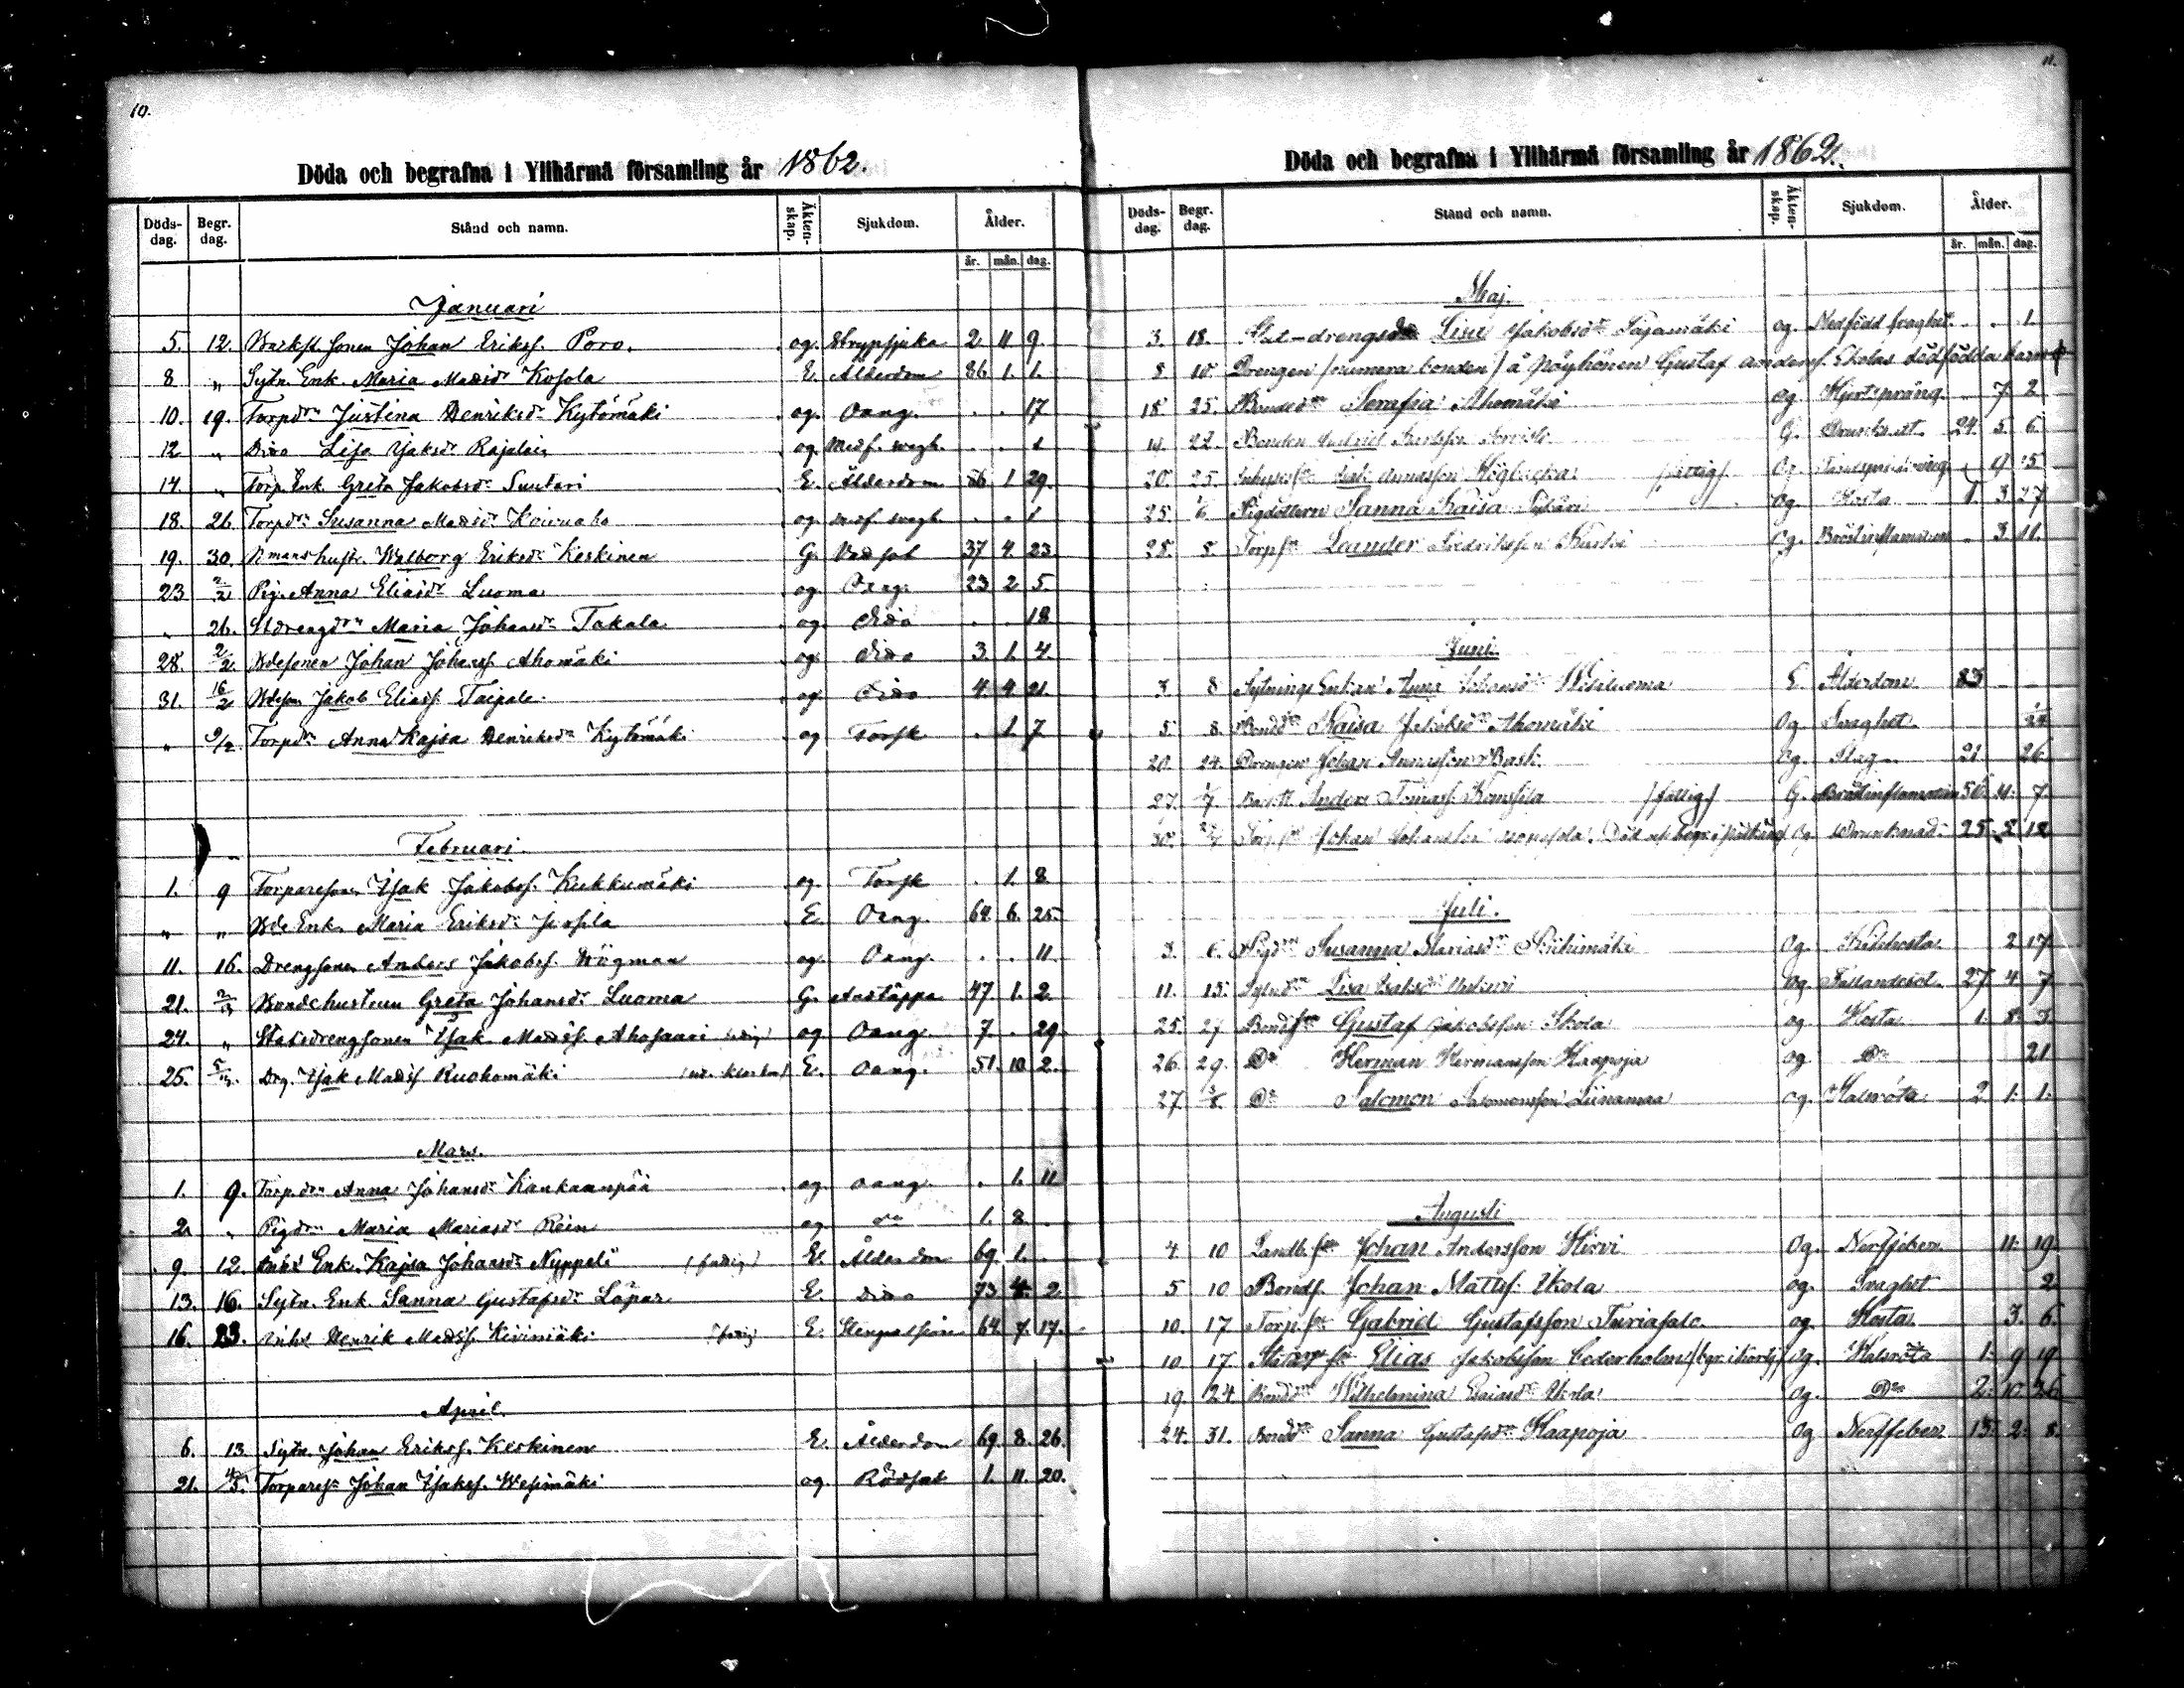 10.
Döda och begrafna i Ylihärmä församling år 1862.
Döds-dag. Begr. dag. Stånd och namn. Äkten-skap. Sjukdom. Ålder.
år. mån. dag.
Januari
5. 12. Johan Erikss. Poro. og. Strypsjuka 2 11 9.
8 „ Sytn. Enk. Maria Matsdr Kosola E. Ålderdom 86 1. 1.
10. 19. Torpdrn Justina Henriksdr Kytömäki og. Oang. . . 17
12 „ Dito Lisa Isaksdr og. Medf. svagh. . . 1
14. „ Torp. Enk. Greta Jakobsdr Suutari E. Ålderdom 86 1 29.
18. 26. Torpdrn Susanna Matsdr og. Medf. svagh. . . 1
19. 30. hustr. Walborg Eriksdr Keskinen G. 37 4. 23.
23 2/2 Pig. Anna Eliasdr Luoma og. Oang. 23 2 5.
„ 26. Maria Johansdr Takala og Dido . . 18
28. 2/2 Bdesonen Johan Johanss. Ahomäki og. Dido 3. 1. 4.
31. 16/2 Bdeson Jakob Eliass. Taipale og. Dido 4. 4 21.
„ 9/2 Torpdrn Anna Kajsa Henriksdr Kytömäki og Torsk . 1. 7
Februari.
1. 9 Torpareson Isak Jakobss. Kukkumäki og. Torsk . 1. 8
„ „ Bde Enk. Maria Eriksdr Jussila E. Oang. 64 6. 25.
11. 16. Drengsonen Anders Jakobss. Wägman og. Oang. . . 11
21. 2/3 Bondehustrun Greta Johansdr Luoma G. Anstäppa 47 1. 2.
24. „ Statsdrengsonen Isak Matss. Ahosaari og Oang. 7. . 29.
25. 5/3. Drg. Isak Matss Ruohomäki E. Oang. 51. 10. 2.
Mars.
1. 9. Torp.drn Anna Johansdr Kankaanpää og. oang. . 1. 11
2. „ Pigdrn Maria Mariasdr Rein og. do 1. 8.
9. 12. Enk. Kajsa Johansdr Nyppeli (fattig) E. Ålderdom 69. 1. .
13. 16. Sytn. Enk. Sanna Gustafsdr Löpar E. Dido 73 4. 2
16. 23. Inhs Henrik Matss. Kivimäki (fattig) E. 64. 7. 17.
April.
6. 13. Sytn. Johan Erikss. Keskinen E. Ålderdom 69. 8. 26.
21. 4/5. Torpares. Johan Isakss. Wesimäki og. Rödsot 1. 11. 20.
11.
Döda och begrafna i Ylihärmä församling år 1862.
Döds-dag. Begr. dag. Stånd och namn. Äkten-skap. Sjukdom. Ålder.
år. mån. dag.
Maj.
3. 18. Stat-drengsdr Lisa Jakobsdr og. Medfödd svaghet. . . 1.
8. 18. Drengen /numera bonden/ å Pöyhönen Gustaf Anderss. Ekolas dödfödda barn
18. 25. Bondedrn Serafia Ahomäki og Hjertsprång. . 7. 2
14. 22. Bonden G. 24. 5. 6.
20. 25. /fattig/ Og 9 15
25. Pigdottern Sanna Kaisa Og. Hosta 1. 3 27
28. 8 Torp.sn Leander Fredriksson Og. Bröstinflammation . 3. 11.
Juni.
3 8 Sytnings Enkan Anna Johansdr E. Ålderdom 83
5 8. Bonddrn Kaisa Jakobsdr Ahomäki Og Svaghet
20. 24. Drengen Johan Annasson Og. Slag 21 26.
27. 1/7. Anders Tomass. /fattig/ G. Bröstinflamation 56. 11. 7.
30. Johan Johansson Og. Drunknad 25. 2 18
Juli.
3. 6. Pigdrn Susanna Mariasdr Riihimäki Og Kikhosta 2 17.
11. 15. Lisa Isaksdr Og Fallandesot. 27 4 7
25. 27 Bondsn Gustaf Jakobsson Ekola og Hosta 1. 8. 3.
26. 29. Do Herman Hermansson Haapoja og Do 21
27. 3/8. Do Salomon Salomonsson Liinamaa Og. Halsröta 2. 1. 1.
Augusti
4. 10 Landb. sn Johan Andersson Hirvi Og. Nerffeber 11. 19.
5 10 Bonds. Johan Matts. Ekola og. Svaghet 2
10. 17 Torp. sn Gabriel Gustafsson Turiasalo og Hosta 3. 6.
10. 17. Elias Jakobsson Cederholm Og. Halsröta 1. 9 19
19. 24. Bonddrn Wilhelmina Esaiasdr Ekola Og. Do 2. 10. 26
24. 31. Bonddr Sanna Gustafsdr Haapoja Og Nerffeber 13. 2. 8.